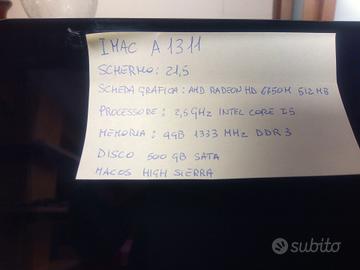 IMAC A1311
SCHERMO: 21,5
SCHEDA GRAFICA: AMD RADEON HD 6750M 512MB
PROCESSORE: 2,5GHz INTEL CORE I5
MEMORIA: 4GB 1333 MHz DDR3
DISCO 500 GB SATA
MACOS HIGH SIERRA
subito